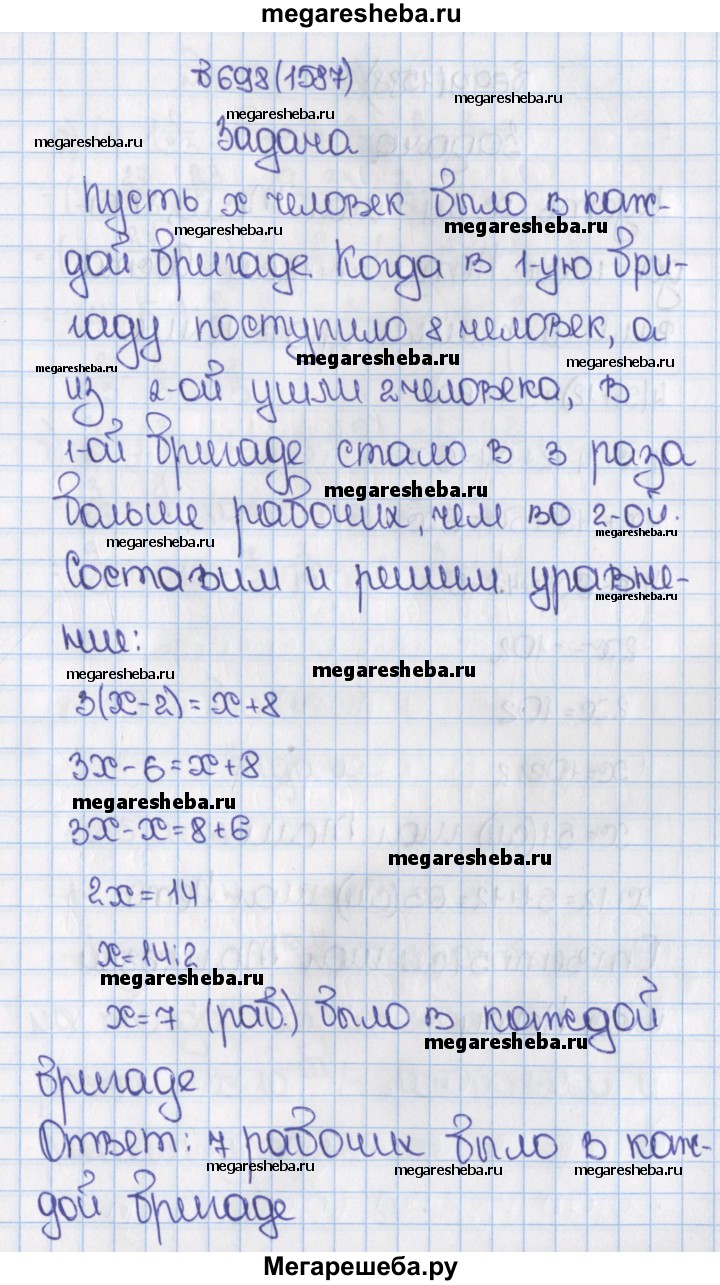 megaresheba.ru
В 698(1587)
megaresheba.ru
megaresheba.ru
megaresheba.ru
Задача
Пусть x человек было в каж-
megaresheba.ru
megaresheba.ru
дой бригаде. Когда в 1-ую бри-
гаду поступило 8 человек, а
megaresheba.ru
megaresheba.ru
megaresheba.ru
из 2-ой ушли 2 человека, в
1-ой бригаде стало в 3 раза
megaresheba.ru
больше рабочих, чем во 2-ой.
megaresheba.ru
megaresheba.ru
Составим и решим уравне-
megaresheba.ru
ние:
megaresheba.ru
megaresheba.ru
3(x-2)=x+8
3x-6=x+8
megaresheba.ru
3x-x=8+6
megaresheba.ru
2x=14
x=14:2
megaresheba.ru
x=7 (раб.) было в каждой
megaresheba.ru
бригаде
Ответ: 7 рабочих было в каж-
megaresheba.ru
megaresheba.ru
megaresheba.ru
дой бригаде
Мегарешеба.ру